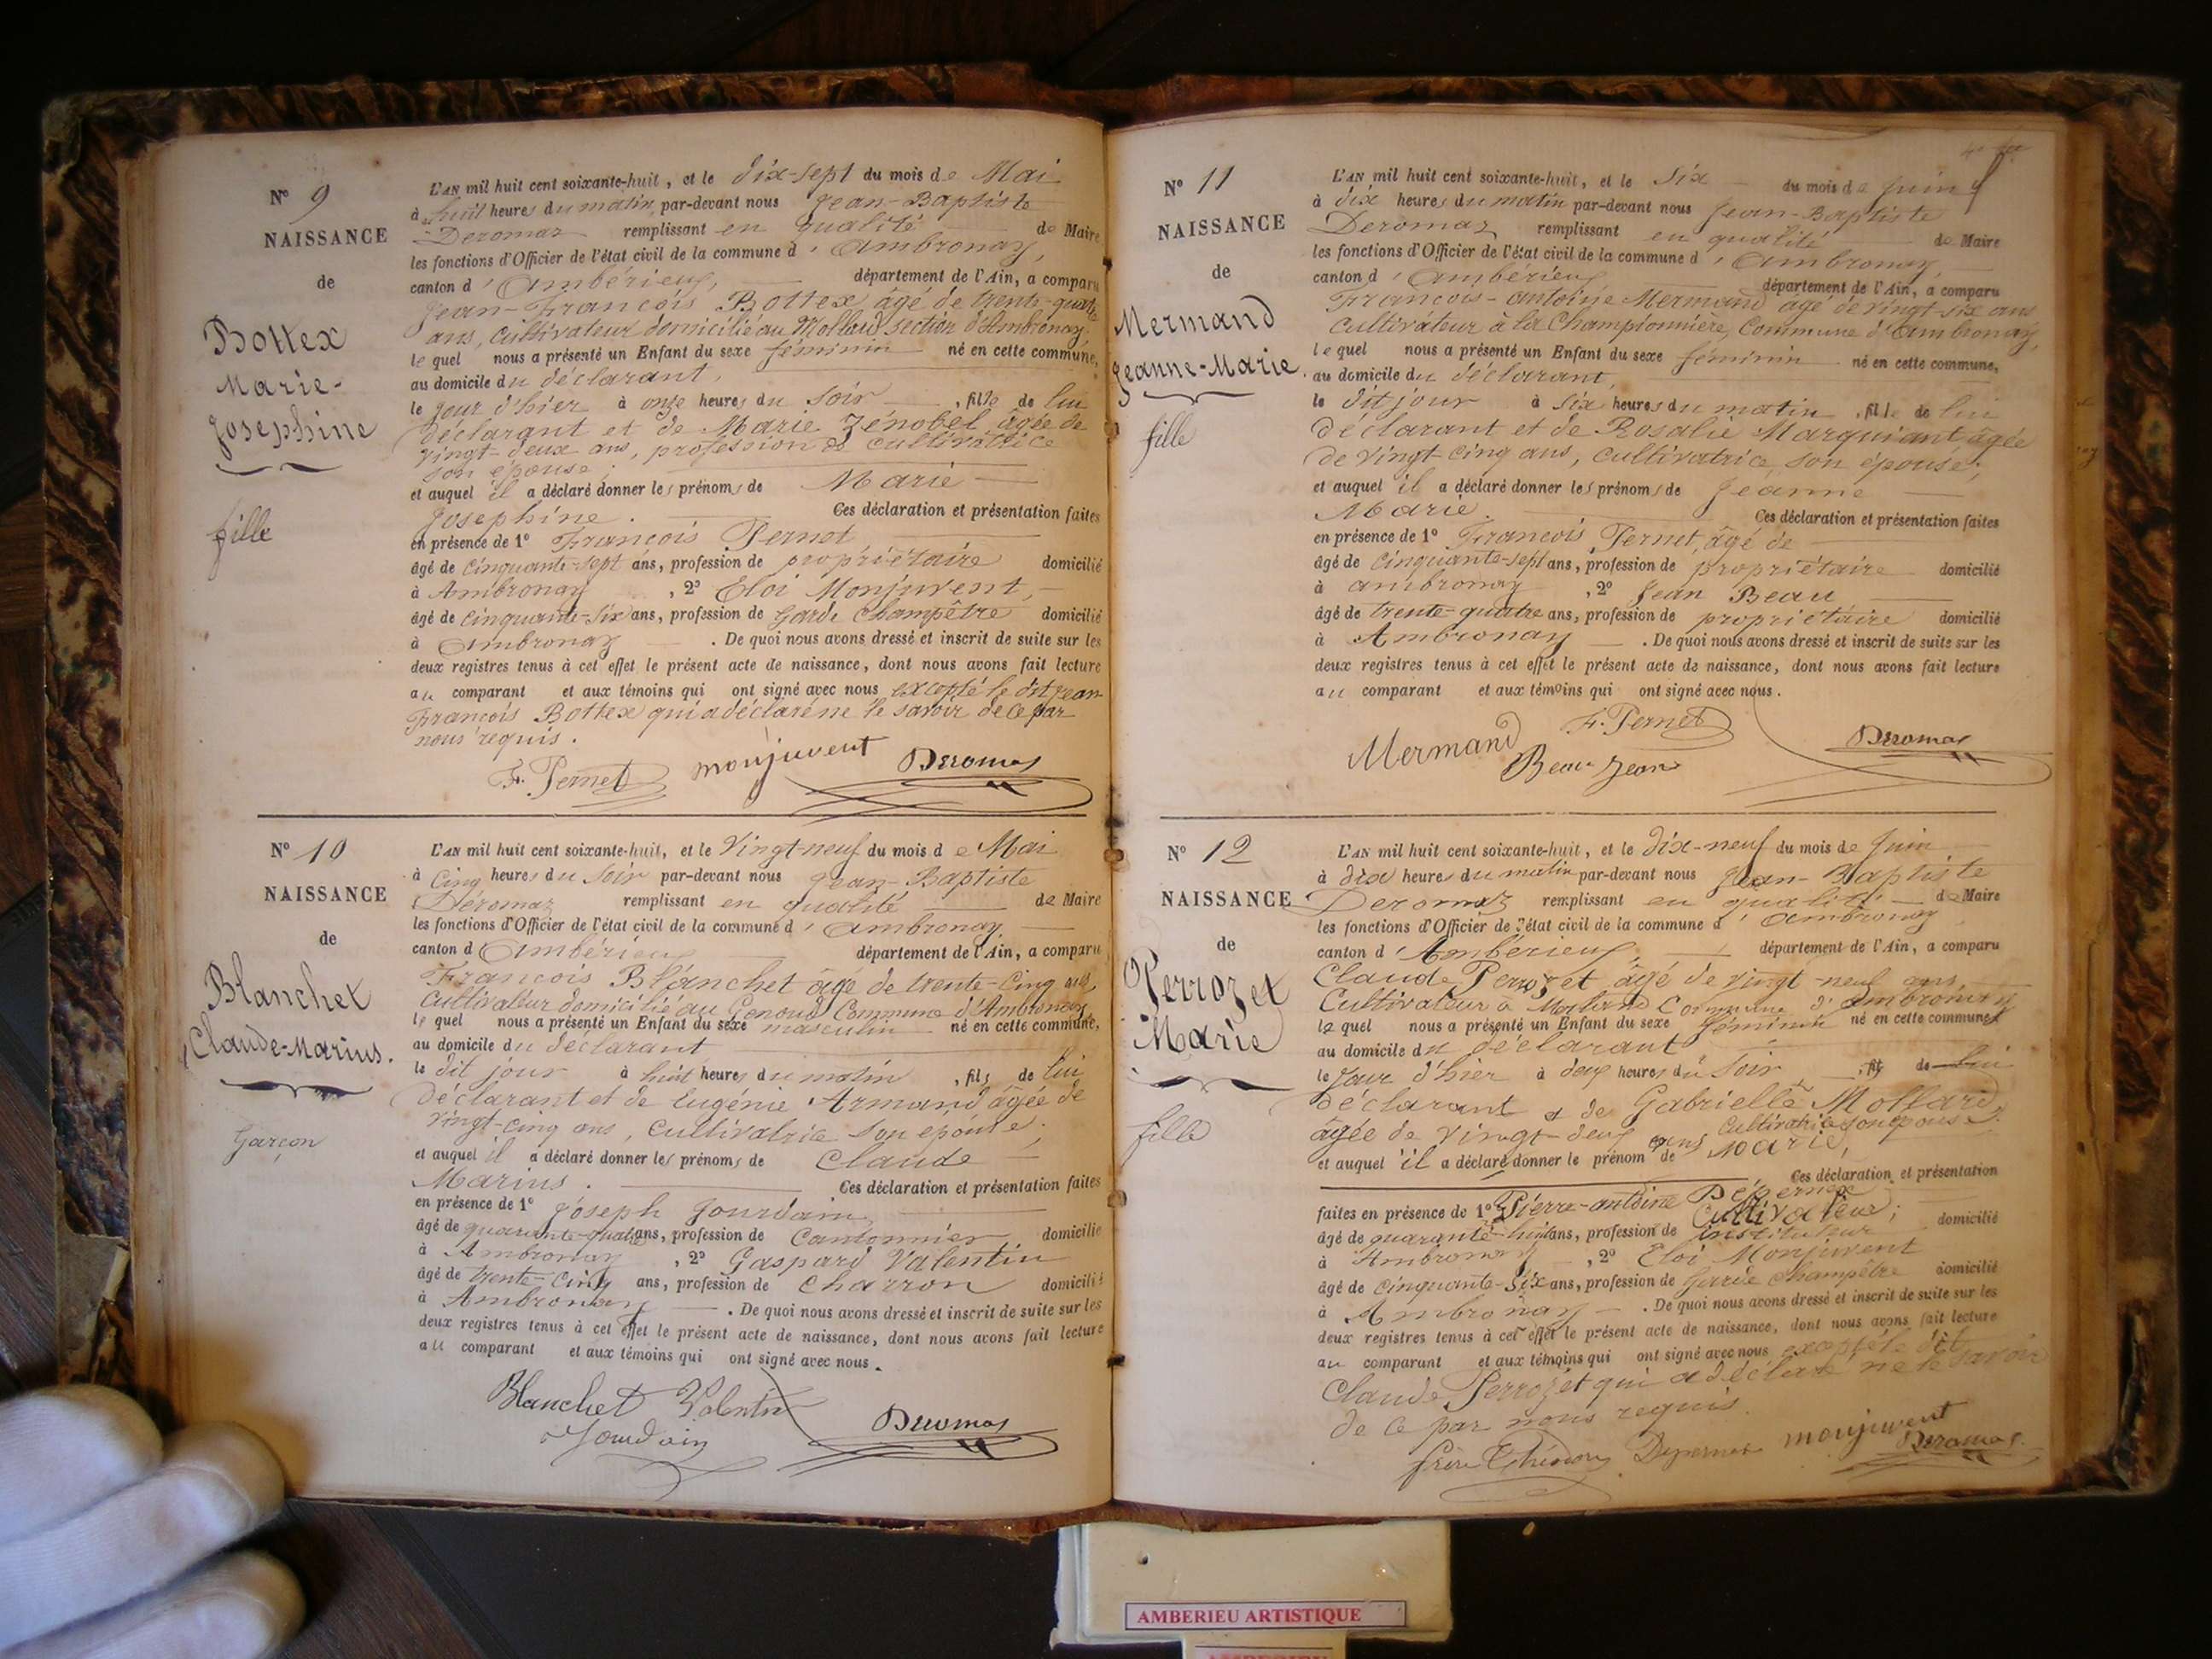 N° 9
NAISSANCE
de
Bottex
Marie-
Josephine
fille
L'AN mil huit cent soixante-huit, et le dix-sept du mois de Mai
à huit heures du matin, par-devant nous Jean-Baptiste
Deromas remplissant en qualité de Maire
les fonctions d'Officier de l'état civil de la commune d'Ambronay,
canton d'Ambérieux, département de l'Ain, a comparu
Jean-François Bottex âgé de trente-quatre
ans, cultivateur domicilié au Mollard section d'Ambronay,
lequel nous a présenté un Enfant du sexe féminin né en cette commune,
au domicile du déclarant,
le jour d'hier à onze heures du soir, fille de lui
déclarant et de Marie Zénobel âgée de
vingt-deux ans, profession de cultivatrice
son épouse;
et auquel il a déclaré donner les prénoms de Marie
Josephine. Ces déclaration et présentation faites
en présence de 1° François Pernet
âgé de cinquante-sept ans, profession de propriétaire domicilié
à Ambronay, 2° Eloi Monjuvent,
âgé de cinquante-six ans, profession de garde champêtre domicilié
à Ambronay. De quoi nous avons dressé et inscrit de suite sur les
deux registres tenus à cet effet le présent acte de naissance, dont nous avons fait lecture
au comparant et aux témoins qui ont signé avec nous excepté le dit Jean-
François Bottex qui a déclaré ne le savoir de ce par
nous requis.
F. Pernet monjuvent Deromas
N° 10
NAISSANCE
de
Blanchet
Claude-Marius.
garçon
L'AN mil huit cent soixante-huit, et le vingt-neuf du mois de Mai
à cinq heures du soir par-devant nous Jean-Baptiste
Deromas remplissant en qualité de Maire
les fonctions d'Officier de l'état civil de la commune d'Ambronay
canton d'Ambérieux département de l'Ain, a comparu
François Blanchet âgé de trente-cinq ans,
cultivateur domicilié au Genoud Commune d'Ambronay,
lequel nous a présenté un Enfant du sexe masculin né en cette commune,
au domicile du déclarant
le dit jour à huit heures du matin, fils de lui
déclarant et de Eugénie Armand âgée de
vingt-cinq ans, cultivatrice son épouse;
et auquel il a déclaré donner les prénoms de Claude
Marius. Ces déclaration et présentation faites
en présence de 1° Joseph Jourdain,
âgé de quarante-quatre ans, profession de Cantonnier domicilié
à Ambronay, 2° Gaspard Valentin
âgé de trente-cinq ans, profession de charron domicilié
à Ambronay. De quoi nous avons dressé et inscrit de suite sur les
deux registres tenus à cet effet le présent acte de naissance, dont nous avons fait lecture
au comparant et aux témoins qui ont signé avec nous.
Blanchet Valentin
Jourdain Deromas
N° 11
NAISSANCE
de
Mermand
Jeanne-Marie.
fille
L'AN mil huit cent soixante-huit, et le six du mois de Juin
à dix heures du matin par-devant nous Jean-Baptiste
Deromas remplissant en qualité de Maire
les fonctions d'Officier de l'état civil de la commune d'Ambronay,
canton d'Ambérieux département de l'Ain, a comparu
François-antoine Mermand âgé de vingt-six ans
cultivateur à la Championnière, Commune d'Ambronay,
lequel nous a présenté un Enfant du sexe féminin né en cette commune,
au domicile du déclarant,
le dit jour à six heures du matin, fille de lui
déclarant et de Rosalie Marguiant âgée
de vingt cinq ans, cultivatrice, son épouse;
et auquel il a déclaré donner les prénoms de Jeanne
Marie. Ces déclaration et présentation faites
en présence de 1° François Pernet, âgé de
âgé de cinquante-sept ans, profession de propriétaire domicilié
à ambronay, 2° Jean Beau
âgé de trente-quatre ans, profession de propriétaire domicilié
à Ambronay. De quoi nous avons dressé et inscrit de suite sur les
deux registres tenus à cet effet le présent acte de naissance, dont nous avons fait lecture
au comparant et aux témoins qui ont signé avec nous.
Mermand F. Pernet Deromas
Beau Jean
N° 12
NAISSANCE
de
Perrozet
Marie
fille
L'AN mil huit cent soixante-huit, et le dix-neuf du mois de Juin
à dix heures du matin par-devant nous Jean-Baptiste
Deromas remplissant en qualité de Maire
les fonctions d'Officier de l'état civil de la commune d'ambronay
canton d'Ambérieux, département de l'Ain, a comparu
Claude Perrozet âgé de vingt-neuf ans
Cultivateur à Commune d'ambronay
lequel nous a présenté un Enfant du sexe féminin né en cette commune,
au domicile du déclarant
le jour d'hier à deux heures du soir, fil de lui
déclarant et de Gabrielle Mollard
âgée de vingt-deux ans cultivatrice son épouse.
et auquel il a déclaré donner le prénom de Marie,
Ces déclaration et présentation
faites en présence de 1° Pierre-antoine Dépernex
Cultivateur;
âgé de quarante-huit ans, profession de instituteur domicilié
à Ambronay, 2° Eloi Monjuvent
âgé de cinquante-six ans, profession de garde champêtre domicilié
à Ambronay. De quoi nous avons dressé et inscrit de suite sur les
deux registres tenus à cet effet le présent acte de naissance, dont nous avons fait lecture
au comparant et aux témoins qui ont signé avec nous excepté le dit
Claude Perrozet qui a déclaré ne le savoir
de ce par nous requis.
frère Depernex monjuvent Deromas
AMBERIEU ARTISTIQUE
AMBERIEU